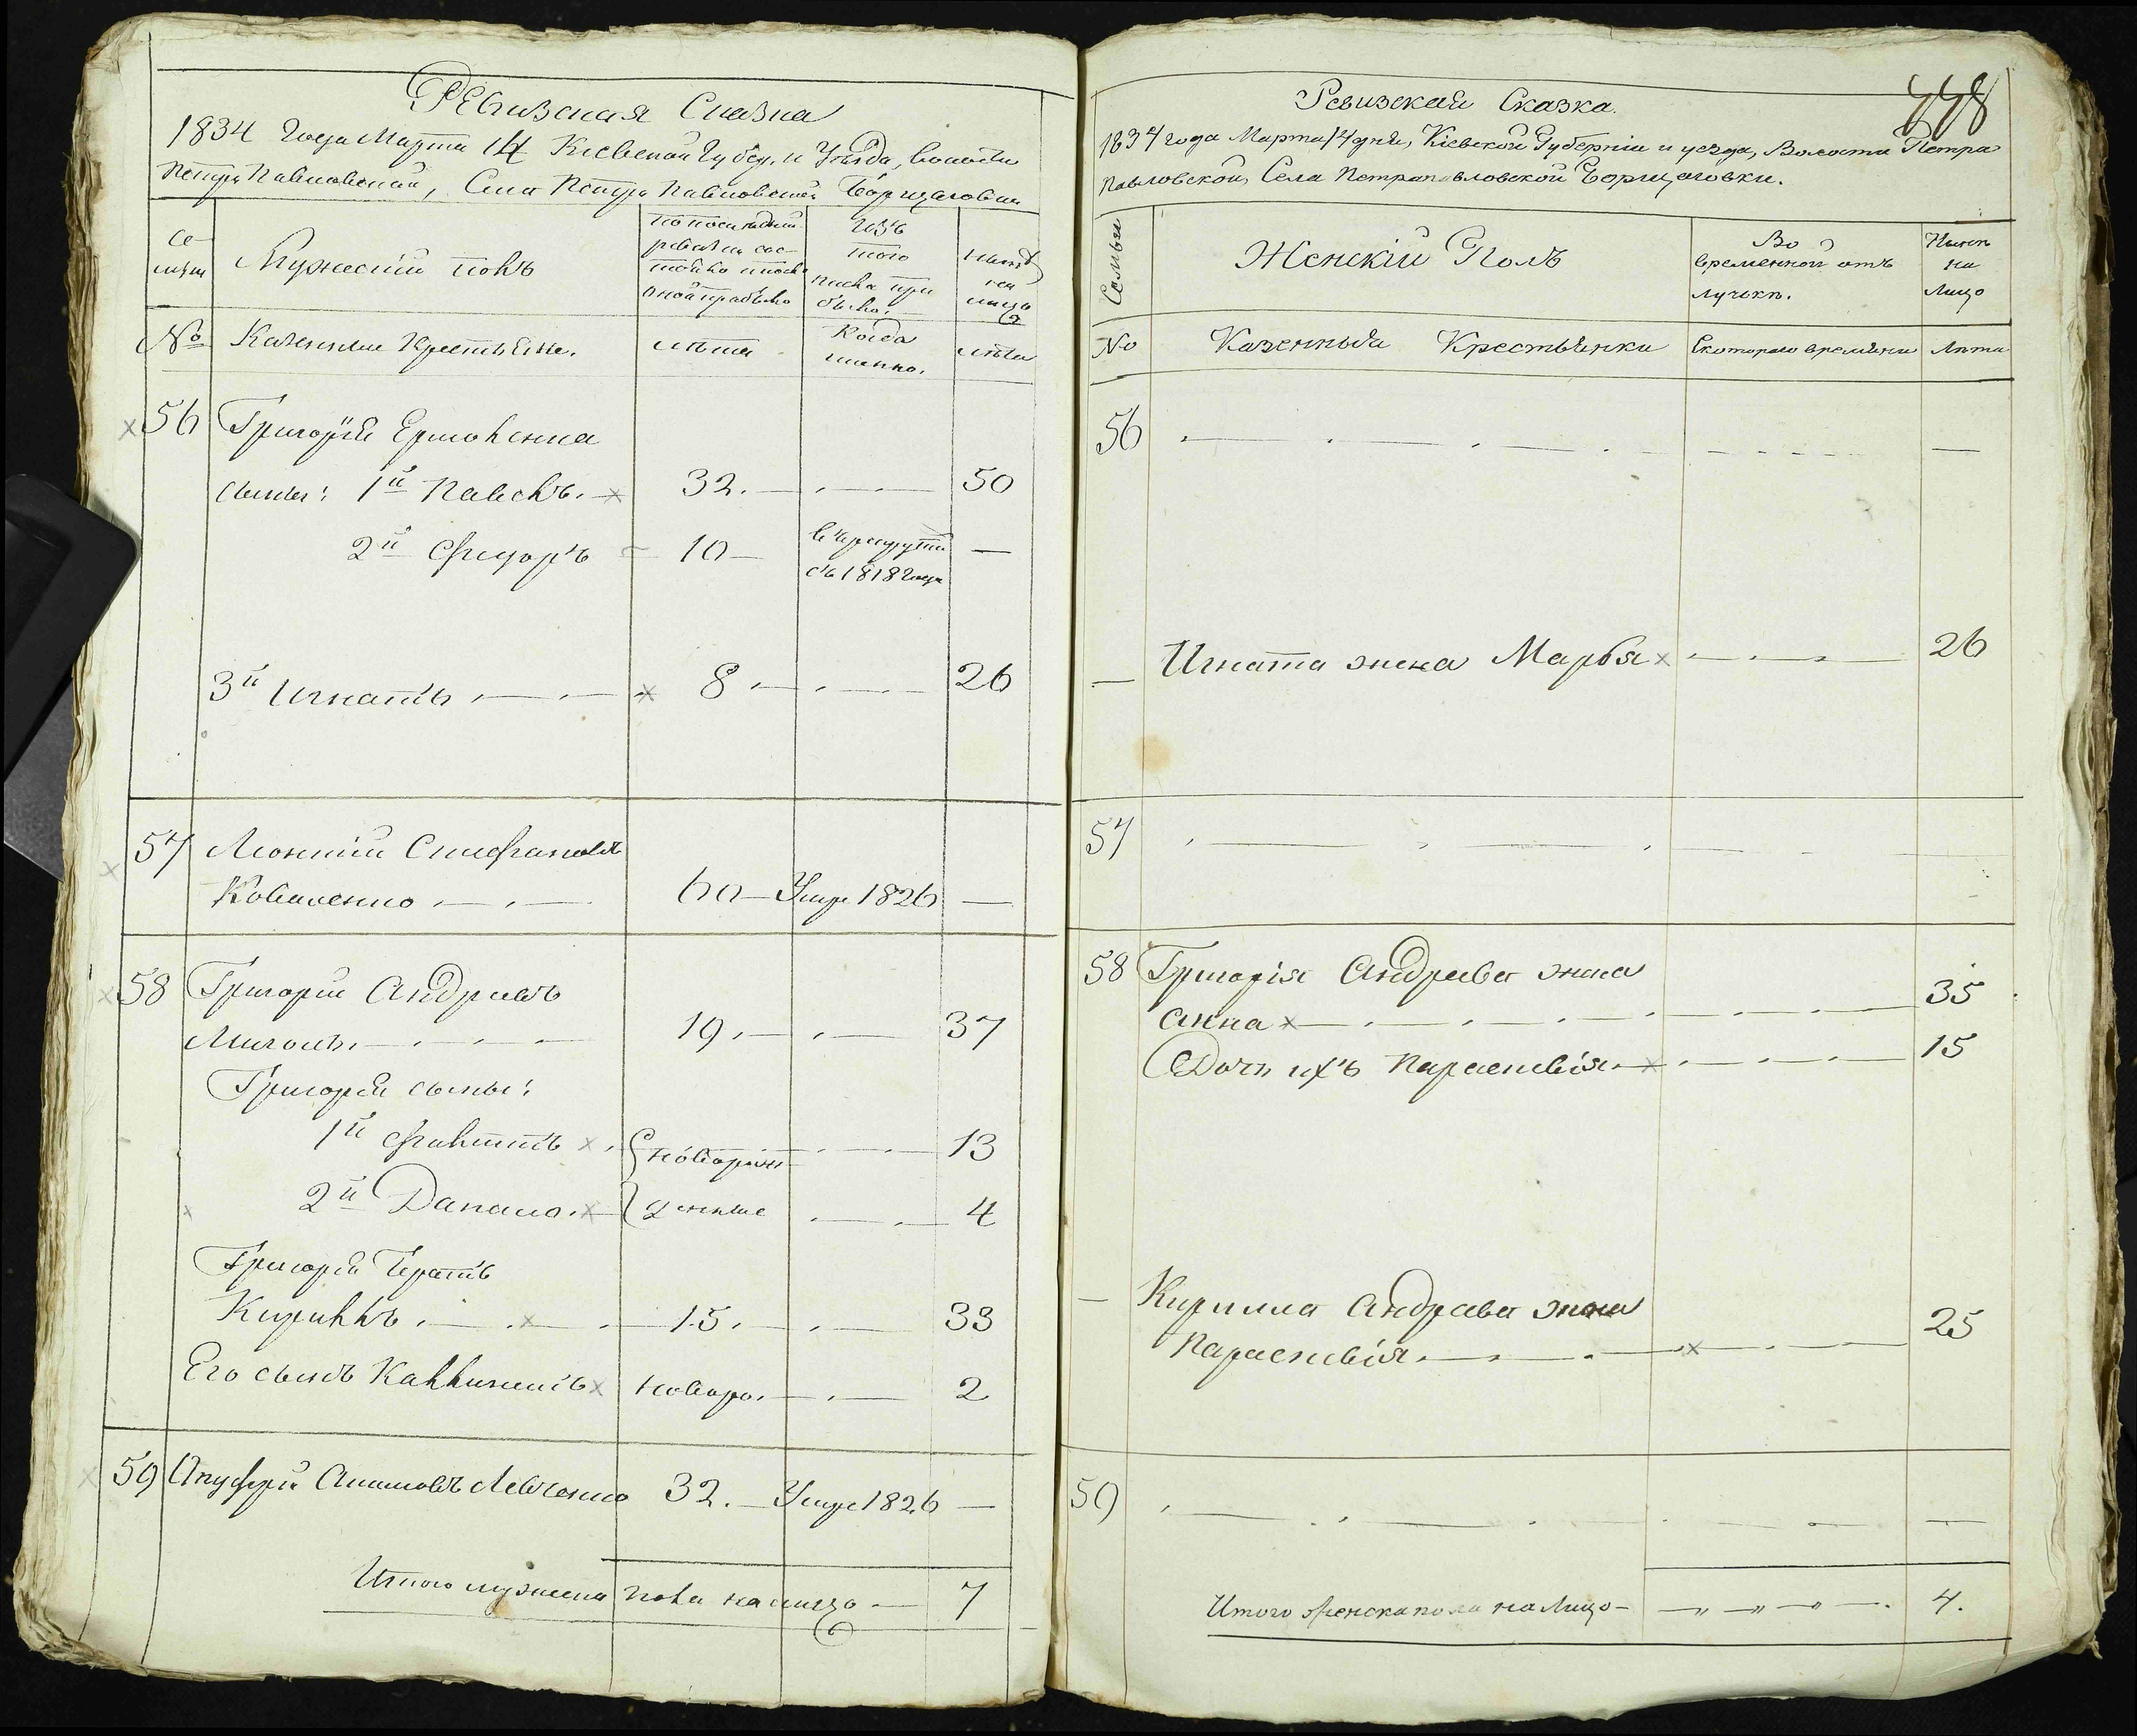 Ревизская Сказка
1834 года Марта 14 Киевской Губер. и Уѣзда, Волости
Петро Павловской, Села Петро Павловской Борщаговки
Се-
мьи
Мужескій полъ
По последней
ревизіи сос-
тояло и после
оной прибыло
Изъ
того
числа при
было.
Ныне
на
лицо
№
Казенные Крестьяне.
лѣта
Когда
именно.
лѣта
56 Григорій Ермоленка
сыны: 1й Павелъ. 32. 50
2й Фидоръ 10 — в рекруты —
съ 1818 года
3й Игнатъ 8 26
57 Леонтій Стефановъ
Коваленко 60 — Умре 1826 —
58 Григорій Андреевъ
19. 37
Григорія сыны:
1й новорож 13
2й Данило. денные 4
Григорія братъ
Кирилъ 15. 33
Его сынъ новоро. 2
59 Ануфрій Левченко 32. — Умре 1826 —
Итого мужеска пола на лицо — 7
448
Ревизская Сказка.
1834 года Марта 14 дня, Кіевской Губерніи и уезда, Волости Петра
Павловской, Села Петрапавловской Борщаговки.
Семьи
Женскій Полъ
Во
временной отъ
лучьки.
Ныне
на
Лицо
№
Казенныя Крестьянки
Скотораго времѣни
Лѣта
56
— Игната жена Марья 26
57
58 Григорія Андреева жена
Анна 35
Дочь ихъ Параскевія. 15
— Кирилла Андреева жена
Параскевія. 25
59
Итого женска пола на Лицо — 4.